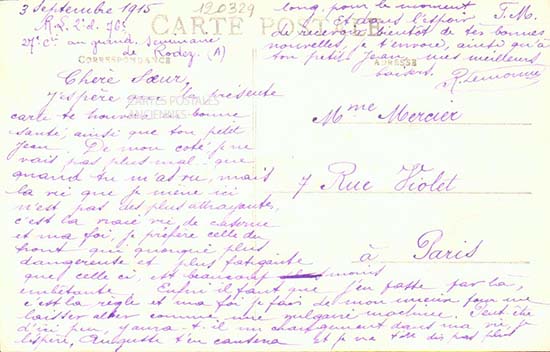 3 Septembre 1915
120329
CARTE POSTALE
27e Cie au grand Séminaire
de Rodez (A)
CORRESPONDANCE
ADRESSE
Chère Sœur,
J'espère que la présente
CARTES POSTALES
ANCIENNES
carte te trouvera en bonne
santé, ainsi que ton petit
Jean. De mon côté je ne
vais pas plus mal que
quand tu m'as vu, mais
la vie que je mène ici
n'est pas des plus attrayantes,
c'est la vraie vie de caserne
et ma foi je préfère celle du
front qui quoique plus
dangereuse et plus fatigante
que celle ci, est beaucoup moins
embêtante. Enfin il faut que j'en passe par là,
c'est la règle et ma foi je fais de mon mieux pour me
laisser aller comme une vulgaire machine. Peut être
d'ici peu, y aura-t-il un changement dans ma vie, je
l'espère, Auguste t'en causera et je ne te dis pas plus
long pour le moment
T.M.
Et dans l'espoir
de recevoir bientôt de tes bonnes
nouvelles, je t'envoie, ainsi qu'à
ton petit Jean, mes meilleurs
baisers.
R. Lemoine
Mme Mercier
7 Rue Violet
à Paris